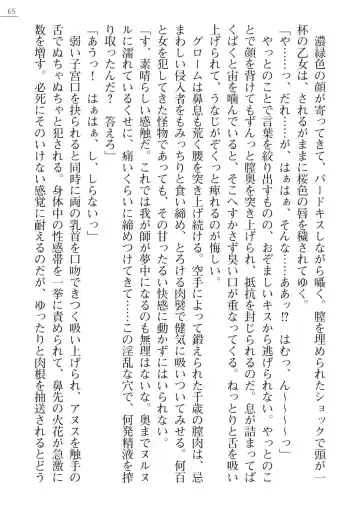 65
濃緑色の顔が寄ってきて、バードキスしながら囁く。膣を埋められたショックで頭が一
杯の乙女は、されるがままに桜色の唇を穢されてゆく。
「や……っ、だれ……が、はぁはぁ、そんな……ああッ!? はむっ、ん〜〜〜〜っ」
やっとのことで言葉を絞り出すものの、おぞましいキスから逃げられない。やっとのこ
とで顔を背けてもずんっと膣奥を突き上げられ、抵抗を封じられるのだ。息が詰まってぱ
くぱくと宙を噛んでいると、そこへすかさず臭い口が重なってくる。ねっとりと舌を吸い
上げられて、うなじがぞくっと痺れるのが悔しい。
グロームは鼻息も荒く腰を突き上げ続ける。空手によって鍛えられた千歳の膣肉は、忌
まわしい侵入者をもみっちりと食い締め、とろける肉襞で健気に吸いついてみせる。何百
と女を犯してきた怪物であっても、そのたぎるい快感に動かずにはいられない。
「す、素晴らしい感触だ。これでは我が師が夢中になるのも無理はないな。奥までヌルヌ
ルに濡れているくせに、痛いくらいに締めつけてきて……この淫乱な穴で、何発精液を搾
り取ったんだ? 答えろ」
「あうっ! はぁはぁ、し、しらないっ」
弱い子宮口を抉られると同時に両の乳首を口吻できつく吸い上げられ、アヌスを触手の
舌でぬちゃぬちゃと犯される。身体中の性感帯を一挙に責められて、鼻先の火花が急激に
数を増す。必死にそのいけない感覚に耐えるのだが、ゆったりと肉根を抽送されるとどう